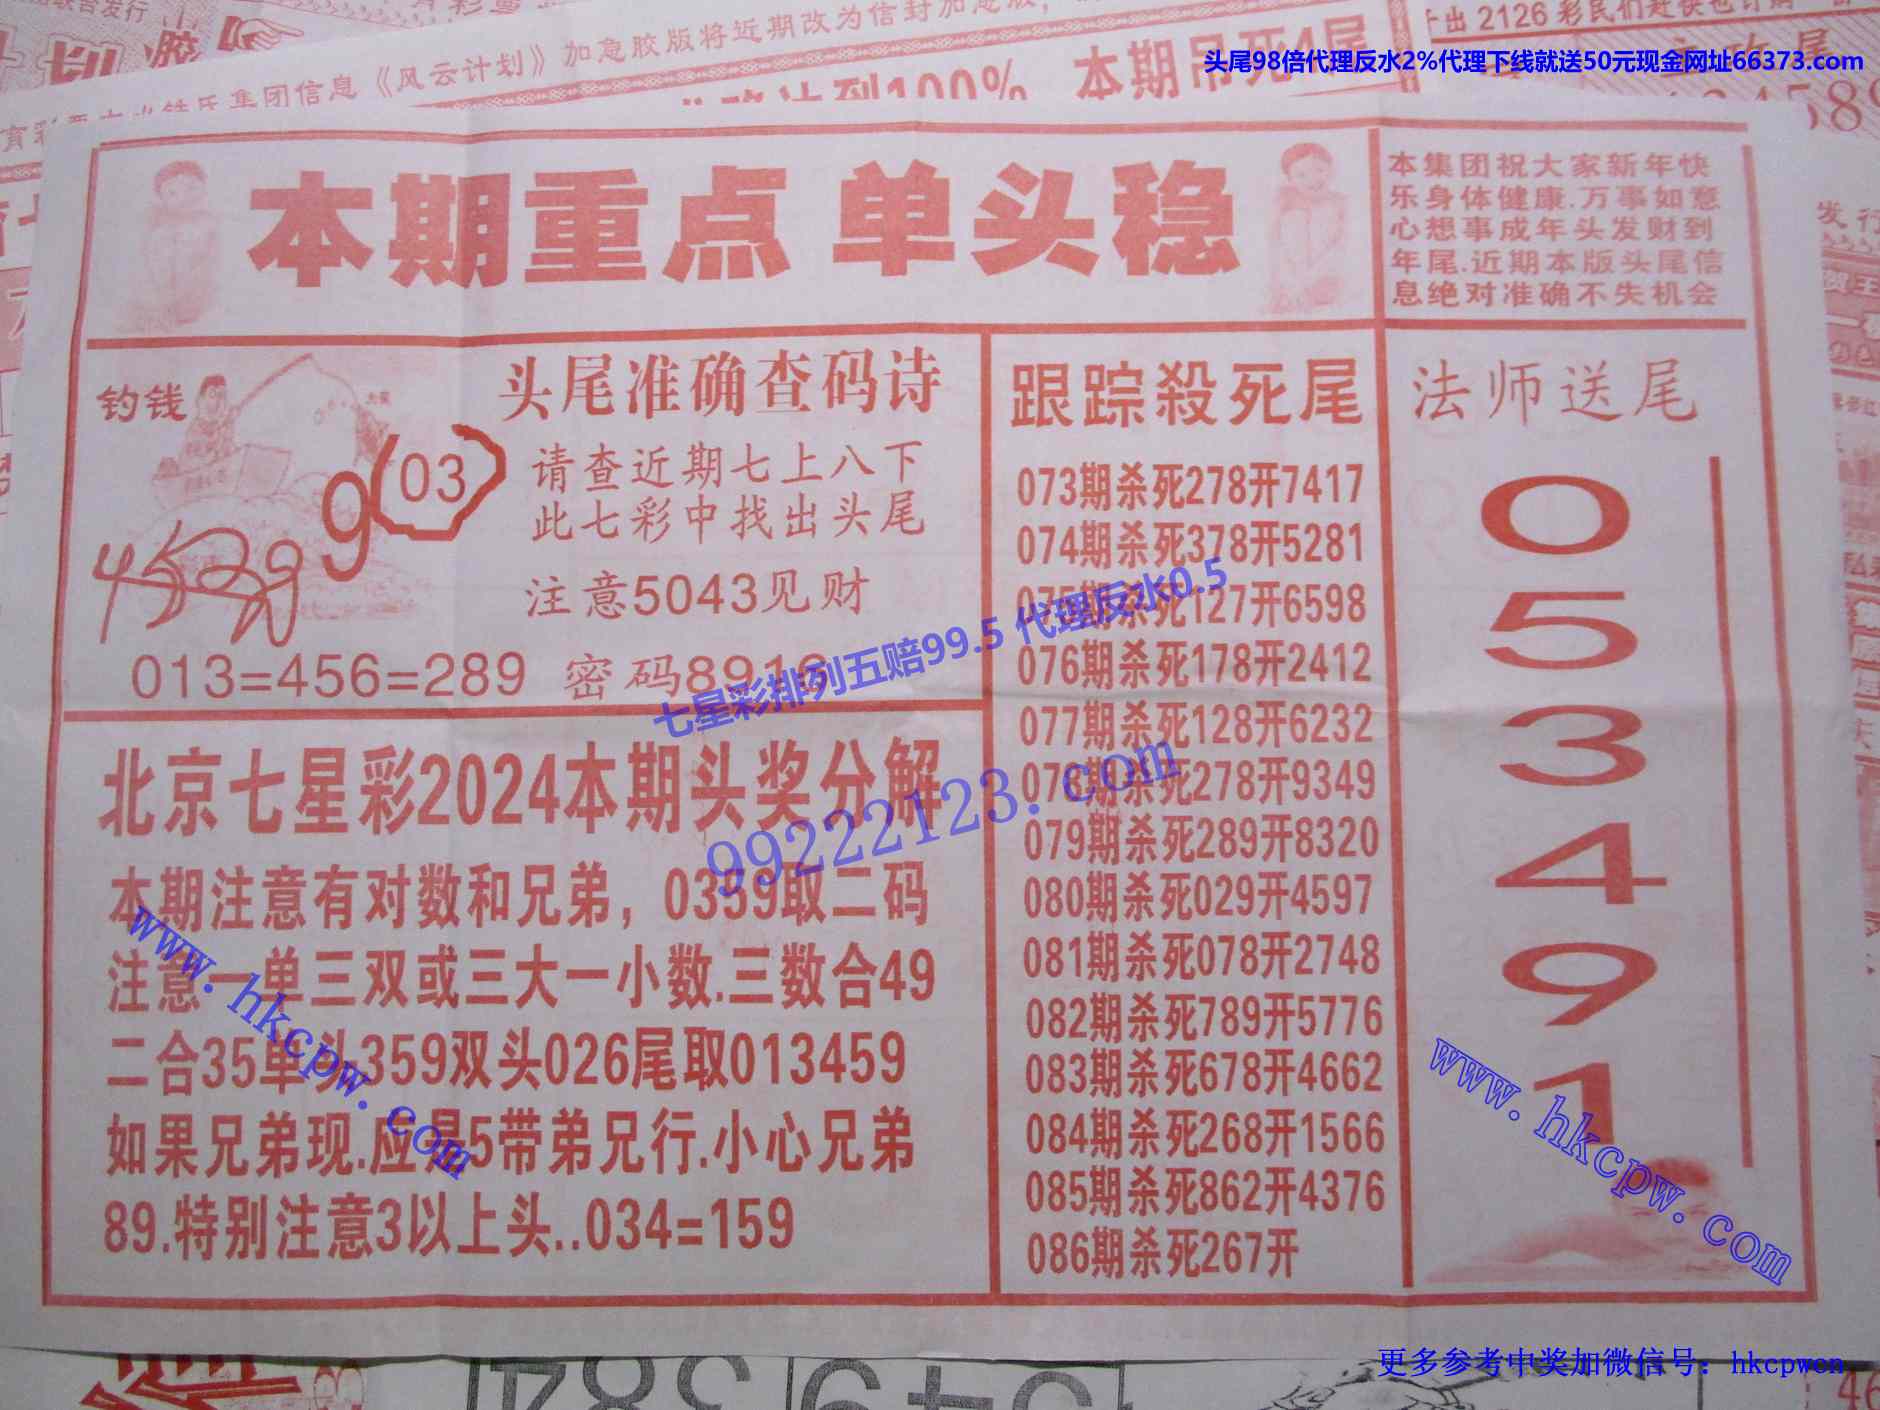 头尾98倍代理反水2%代理下线就送50元现金网址66373.com
集团信息《风云计划》加急胶版将近期改为信封加急版
出 2126 彩民们赶快
100% 本期吊死4尾
本期重点 单头稳
本集团祝大家新年快
乐身体健康.万事如意
心想事成年头发财到
年尾.近期本版头尾信
息绝对准确不失机会
钓钱
9
03
头尾准确查码诗
请查近期七上八下
此七彩中找出头尾
注意5043见财
013=456=289 密码8916
北京七星彩2024本期头奖分解
本期注意有对数和兄弟，0359取二码
注意一单三双或三大一小数.三数合49
二合35单头359双头026尾取013459
如果兄弟现.应是5带弟兄行.小心兄弟
89.特别注意3以上头..034=159
跟踪殺死尾
073期杀死278开7417
074期杀死378开5281
075期杀死127开6598
076期杀死178开2412
077期杀死128开6232
078期杀死278开9349
079期杀死289开8320
080期杀死029开4597
081期杀死078开2748
082期杀死789开5776
083期杀死678开4662
084期杀死268开1566
085期杀死862开4376
086期杀死267开
法师送尾
0
5
3
4
9
1
七星彩排列五赔99.5 代理反水0.5
99222123.com
www.hkcpw.com
www.hkcpw.com
更多参考中奖加微信号：hkcpwcn